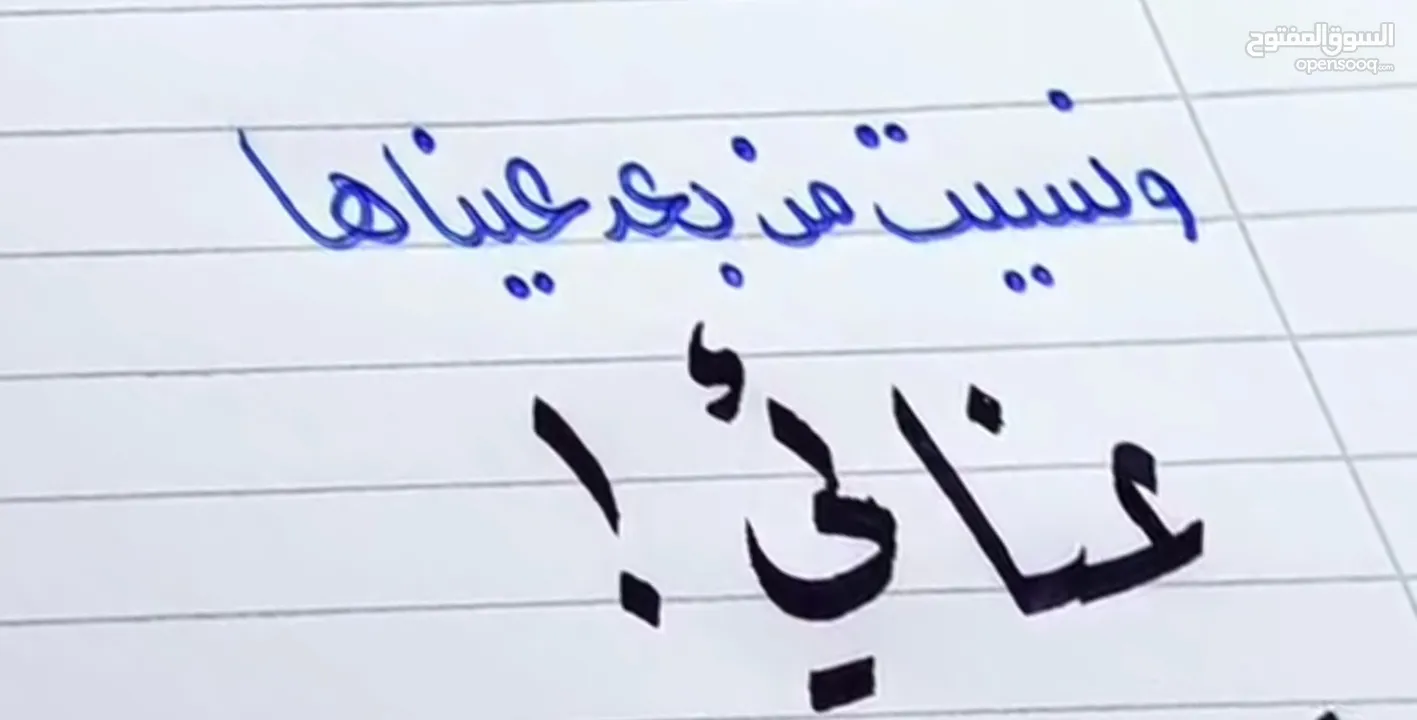 السوق المفتوح
opensooq.com
ونسيت من بعد عيناها
عنائي !